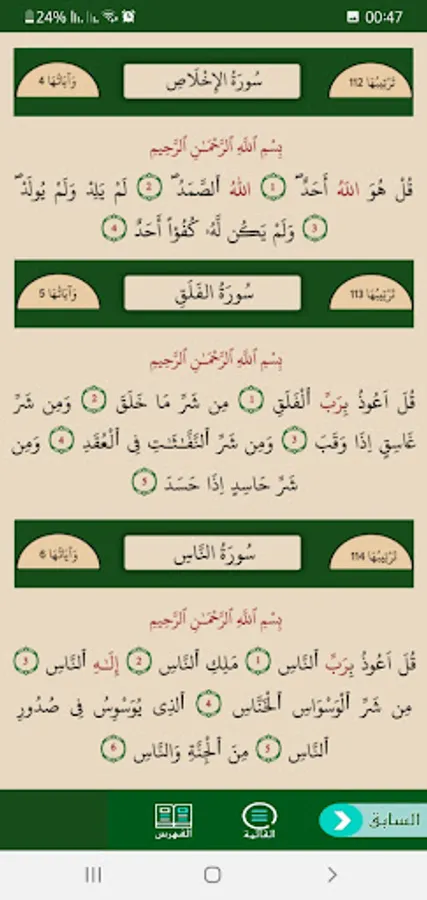 24% 00:47
تَرْتِيبُهَا 112 سُورَةُ الإِخْلَاصِ وَآيَاتُهَا 4
بِسْمِ اِ۬للَّهِ اِ۬لرَّحْمَٰنِ اِ۬لرَّحِيمِ
قُلْ هُوَ اَ۬للَّهُ أَحَدٌ ۖ 1 اَ۬للَّهُ اُ۬لصَّمَدُ ۖ 2 لَمْ يَلِدْ وَلَمْ يُولَدْ ۖ
3 وَلَمْ يَكُن لَّهُۥ كُفُؤاً أَحَدٌ 4
تَرْتِيبُهَا 113 سُورَةُ الفَلَقِ وَآيَاتُهَا 5
بِسْمِ اِ۬للَّهِ اِ۬لرَّحْمَٰنِ اِ۬لرَّحِيمِ
قُلَ اَعُوذُ بِرَبِّ اِ۬لْفَلَقِ 1 مِن شَرِّ مَا خَلَقَ 2 وَمِن شَرِّ
غَاسِقٍ إِذَا وَقَبَ 3 وَمِن شَرِّ اِ۬لنَّفَّٰثَٰتِ فِے اِ۬لْعُقَدِ 4 وَمِن
شَرِّ حَاسِدٍ إِذَا حَسَدَ 5
تَرْتِيبُهَا 114 سُورَةُ النَّاسِ وَآيَاتُهَا 6
بِسْمِ اِ۬للَّهِ اِ۬لرَّحْمَٰنِ اِ۬لرَّحِيمِ
قُلَ اَعُوذُ بِرَبِّ اِ۬لنَّاسِ 1 مَلِكِ اِ۬لنَّاسِ 2 إِلَٰهِ اِ۬لنَّاسِ 3
مِن شَرِّ اِ۬لْوَسْوَاسِ اِ۬لْخَنَّاسِ 4 اِ۬لذِے يُوَسْوِسُ فِے صُدُورِ
اِ۬لنَّاسِ 5 مِنَ اَ۬لْجِنَّةِ وَالنَّاسِ 6
السابق القائمة الفهرس